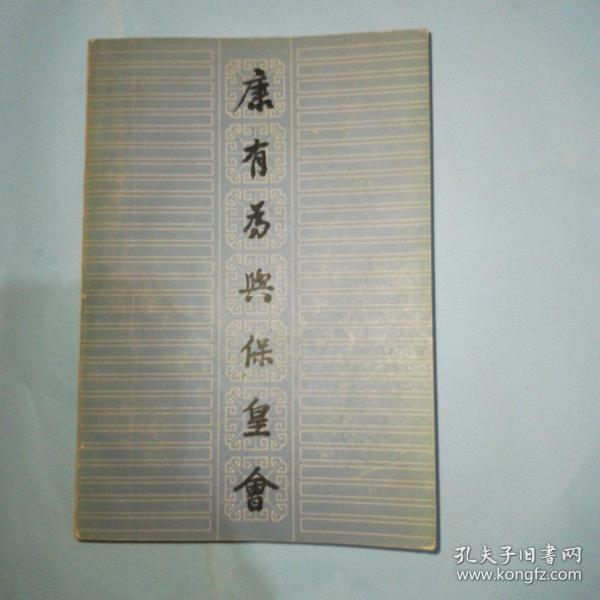 康有為與保皇會
孔夫子旧書网
www.kongfz.com